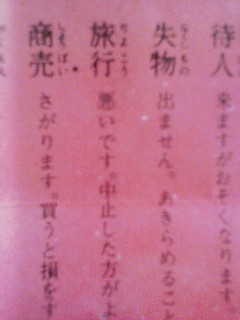 待人 来ますがおそくなります。
失物 出ません。あきらめること
旅行 悪いです。中止した方がよ
商売 さがります。買うと損をす